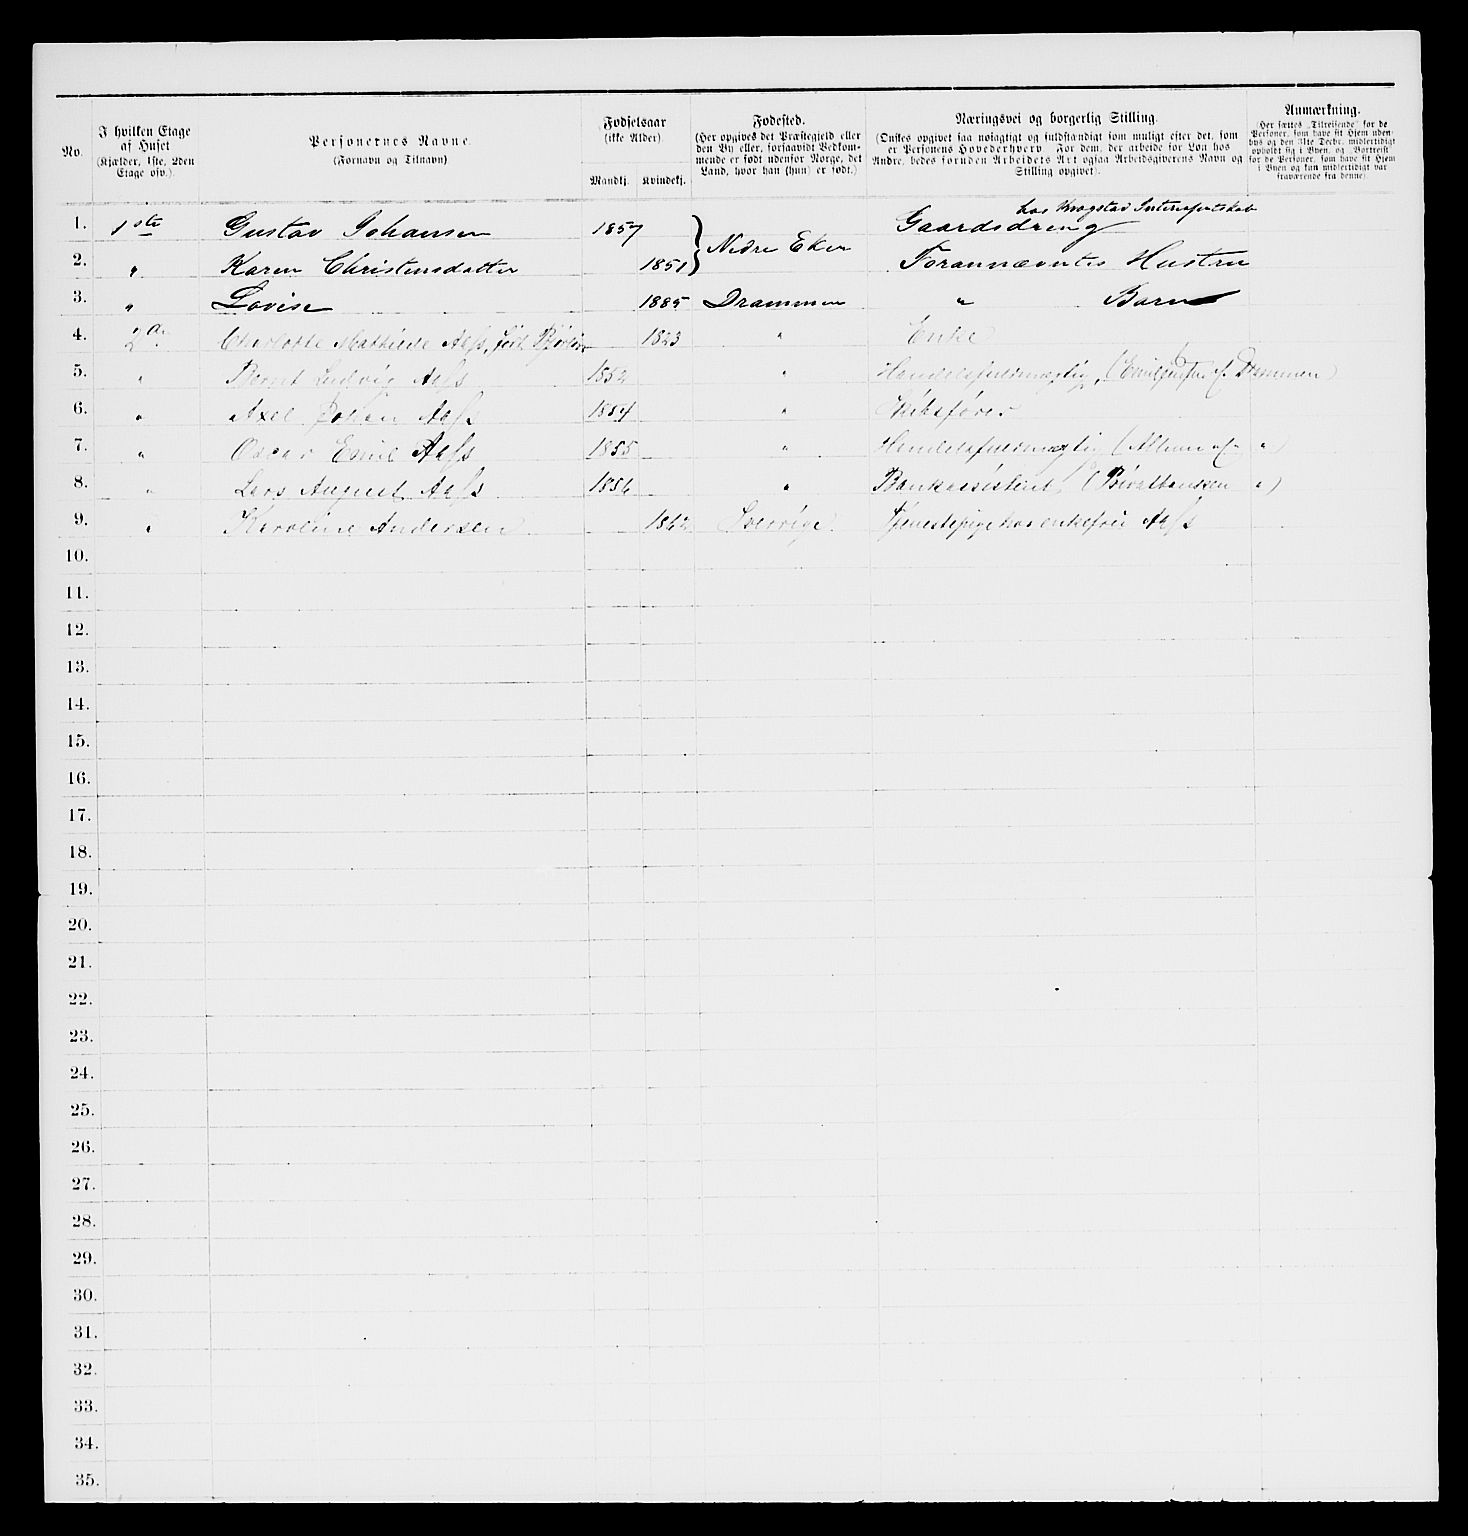 No. | I hvilken Etage af Huset (Kjælder, 1ste, 2den Etage osv.). | Personernes Navne. (Fornavn og Tilnavn). | Fødselsaar (ikke Alder). Mandkj. | Kvindekj. | Fødested. (Her opgives det Præstegjeld eller den By eller, forsaavidt Vedkommende er født udenfor Norge, det Land, hvor han (hun) er født.) | Næringsvei og borgerlig Stilling. (Ønskes opgivet saa nøiagtigt og fuldstændigt som muligt efter det, som er Personens Hovederhverv. For dem, der arbeide for Løn hos Andre, bedes foruden Arbeidets Art ogsaa Arbeidsgiverens Navn og Stilling opgivet). | Anmærkning. (Her sættes „Tilreisende“ for de Personer, som have sit Hjem udenbys og den 31te Decbr. midlertidigt opholdt sig i Byen, og „Bortreist“ for de Personer, som have sit Hjem i Byen og kun midlertidigt var fraværende fra denne).
1. 1ste Gustav Johansen 1857 } Nedre Eker Gaardsdreng hos Krogstad Interessentskab
2. " Karen Christensdatter 1851 Forannævntes Hustru
3. " Lovise 1885 Drammen " Barn
4. 2den Charlotte Mathilde Aass, født 1823 " Enke
5. " Bernt Ludvig Aass 1852 " Handelsfuldmægtig, ( Drammen)
6. " Axel Johan Aass 1854 " Skibsfører
7. " Oscar Emil Aass 1855 " Handelsfuldmægtig ( ")
8. " Lars August Aass 1856 " Bankassistent, (Privatbanken ")
9. " Karoline Andersen 1862 Sverrige. Tjenestepige hos enkefru Aass
10.
11.
12.
13.
14.
15.
16.
17.
18.
19.
20.
21.
22.
23.
24.
25.
26.
27.
28.
29.
30.
31.
32.
33.
34.
35.